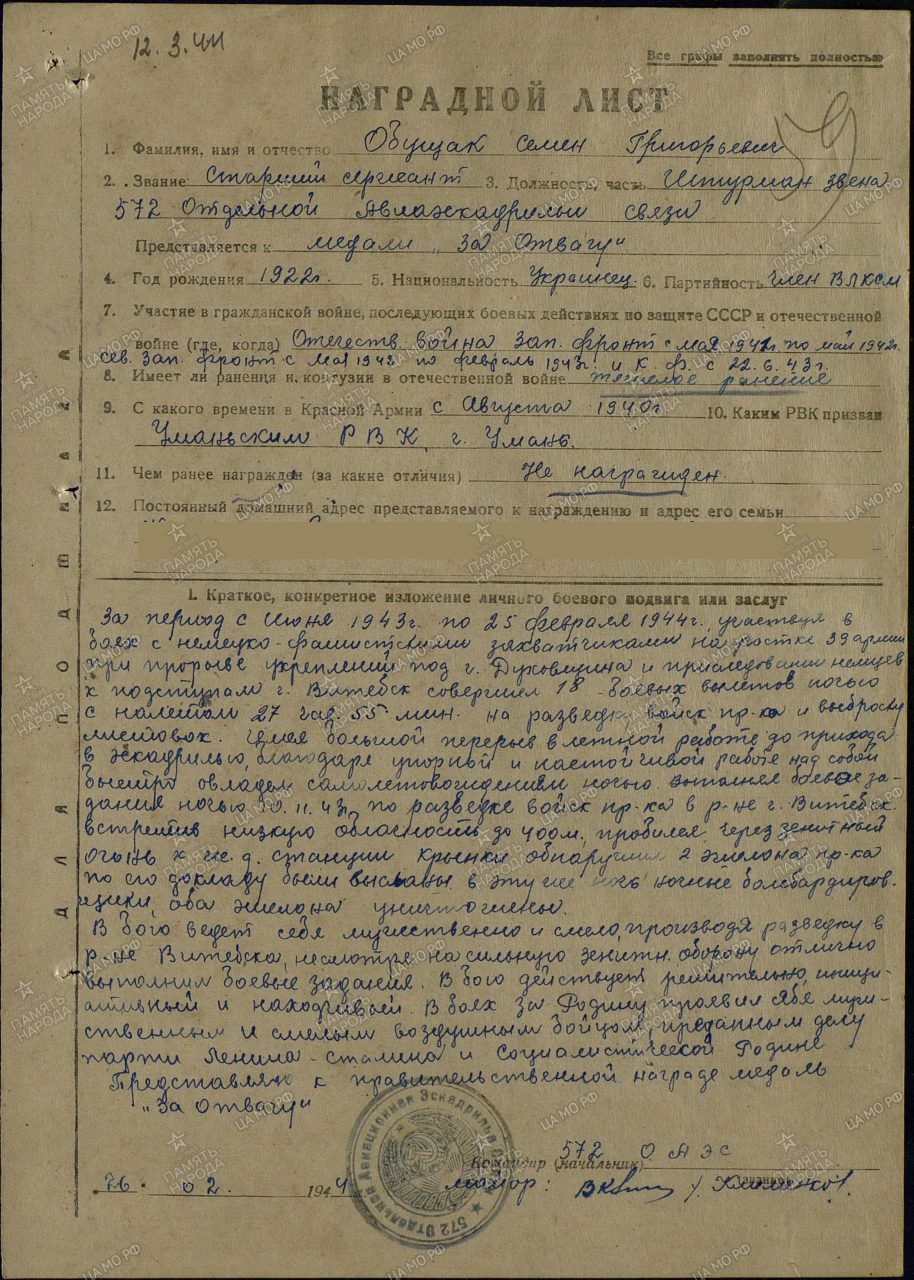 12. 3. 44
Все графы заполнять полностью
НАГРАДНОЙ ЛИСТ
59
1. Фамилия, имя и отчество Обущак Семен Григорьевич
2. Звание Старший сержант 3. Должность, часть Штурман звена
572 Отдельной Авиаэскадрильи связи
Представляется к медали „За Отвагу"
4. Год рождения 1922г. 5. Национальность Украинец 6. Партийность член ВЛКСМ
7. Участие в гражданской войне, последующих боевых действиях по защите СССР и отечественной
войне (где, когда) Отечеств. война Зап. фронт с мая по май 1942г.
сев. зап. фронт с мая 1942 по февраль 1943г. и К. Ф. с 22.6.43г.
8. Имеет ли ранения и контузии в отечественной войне тяжелое ранение
9. С какого времени в Красной Армии с Августа 1940г. 10. Каким РВК призван
Уманьским РВК, г. Умань.
11. Чем ранее награжден (за какие отличия) Не награжден.
12. Постоянный домашний адрес представляемого к награждению и адрес его семьи
I. Краткое, конкретное изложение личного боевого подвига или заслуг
За период с Июня 1943г. по 25 февраля 1944г. участвуя в
боях с немецко-фашистскими захватчиками на участке 39 армии
при прорыве укреплений под г. Духовщина и приследовании немцев
к подступам г. Витебск совершил 18 боевых вылетов ночью
с налетом 27 час. 55 мин. на разведку войск пр-ка и выброску
листовок. Имея большой перерыв в летной работе до прихода
в эскадрилью, благодаря упорной и настойчивой работе над собой
быстро овладел самолетовождением ночью выполняя боевые за-
дания ночью 11.43г. по разведке войск пр-ка в р-не г. Витебск.
встретив низкую облачность до 400м, пробился через зенитный
огонь к ж.д. станции Крынки обнаружил 2 эшелона пр-ка
по его докладу были высланы в эту же ночь ночные бомбардиров-
щики, оба эшелона уничтожены.
В бою ведет себя мужественно и смело, производя разведку в
р-не Витебска, несмотря на сильную зенитн. оборону отлично
выполнил боевые задания. В бою действует решительно, иници-
ативный и находчивый. В боях за Родину проявил себя муже-
ственным и смелым воздушным бойцом, преданным делу
парти Ленина-Сталина и Социалистической Родине
Представляю к правительственной награде медаль
„За Отвагу"
572 Отдельная Авиационная Эскадрилья Связи
Командир (начальник) 572 ОАЭС
майор:
26. 02. 1944
ДЛЯ ПОДШИВКИ
ПАМЯТЬ НАРОДА
ЦАМО.РФ